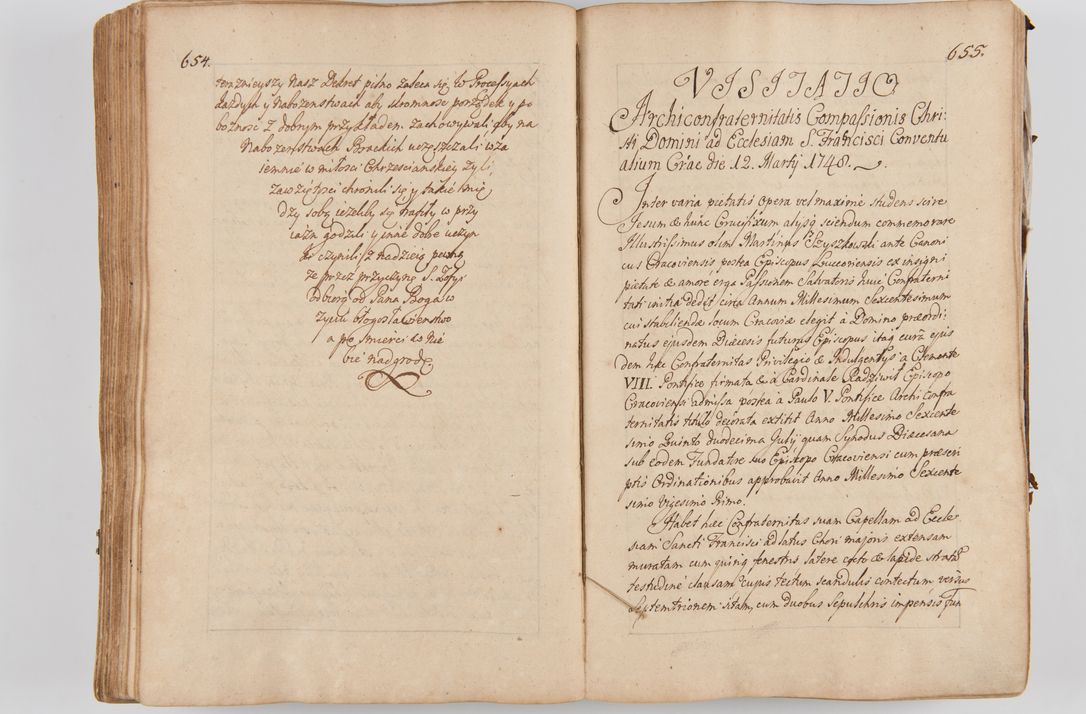 654.
terznieyszy Nasz Dekret pilno zaleca się, W Procesyach
każdych y Nabozenstwach aby skromnosc porządek y po
bożnosc z dobnym przykładem zachowywali, aby na
Nabożenstwach Brackich uczęszczali wza
iemnie w miłosci Chrzescianskiey zyli,
zawziętosci chronili się y takie mię
dzy sobą ieżeliby się trafiły w przy
iazn godzili y inne dobre uczyn
ki czynili, z nadzieią pewną
ze przez przyczynę S. Zofij
odbiorą od Pana Boga w
Zyciu błogosławienstwo
a po smierci w Nie
bie nadgrodę
655.
VISITATIO
Archiconfraternitatis Compassionis Chri:
sti Domini ad Ecclesiam S. Francisci Conventu
alium Crac die 12. Martij 1748.
Inter varia pietatis opera vel maxime studens scire
Jesum & hunc Crucifixum alysq sciendum commemorare
Illustrissimus olim Martinus Szyszkowski ante Canoni
cus Cracoviensis postea Episcopus Luccoriensis ex insigni
pietate & amore erga Passionem Salvatoris huic Confraterni
tati initia dedit circa Annum Millesimum Sexcentesimum
cui stabiliendæ locum Cracoviæ elegit a Domino præordi:
natus ejusdem Diæcesis futurus Episcopus itaq cura ejus
dem hæc Confraternitas Privilegio & Indulgentys a Clemente
VIII. Pontifice firmata & a Cardinale Radziwił Episcopo
Cracoviensi admissa postea a Paulo V. Pontifice Archi Confra
ternitatis titulo decorata extitit Anno Millesimo Sexcente
simo Quinto duodecima July quam Synodus Diæcesana
sub eodem Fundatore suo Episcopo Cracoviensi cum præscri
ptis Ordinationibus approbavit Anno Millesimo Sexcente
simo Vigesimo Primo.
Habet hæc Confraternitas suam Capellam ad Eccle
siam Sancti Francisci ad latus Chori majoris extensam
muratam cum quinq fenestris latere cocto & lapide stratã
testudine clausam cujus tectum scandulis contectum versus
Septemtrionem sitam, cum duobus Sepulchris impensis Fun